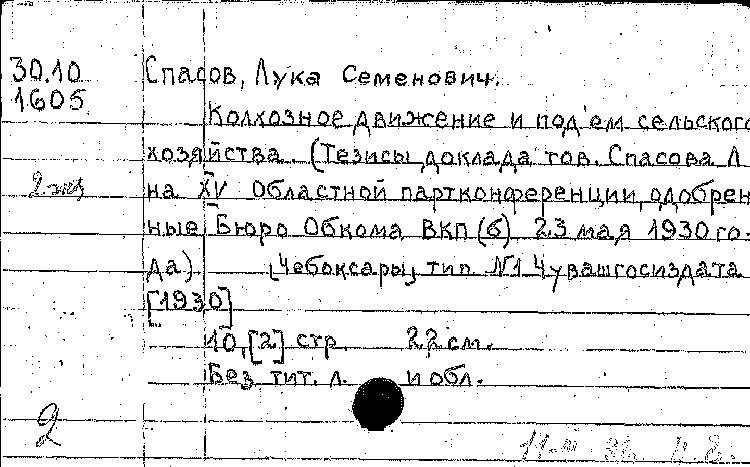 30.10 Спасов, Лука Семенович.
1605
Колхозное движение и под'ем сельского
хозяйства. (Тезисы доклада тов. Спасова Л
2 экз на XV Областной партконференции, одобрен
ные Бюро Обкома ВКП(б) 23 мая 1930 го-
да) [Чебоксары, тип №1 Чувашгосиздата
[1930]
10, [2] стр. 22 см.
Без тит. л. и обл.
2